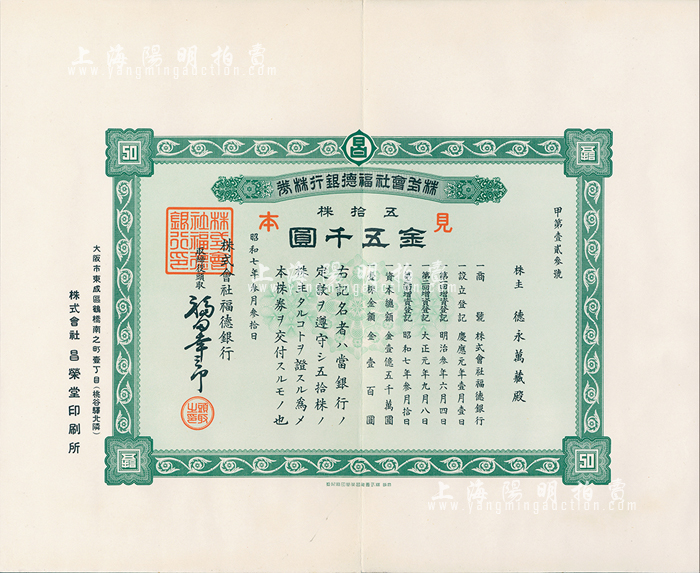 上海陽明拍賣
www.yangmingauction.com
昌
50
株式會社福德銀行株券
株拾五
見本
金五千圓
甲第壹貳參號
株主 德永萬藏殿
一商號 株式會社福德銀行
一設立登記 慶應元年壹月壹日
一第一回增資登記 明治參年六月四日
一第二回增資登記 大正元年九月八日
昭和七年參月拾日
資本總額 金壹億五千萬圓
金壹百圓
右記名者ハ當銀行ノ
定款ヲ遵守シ五拾株ノ
株主タルコトヲ證スル爲メ
本株券ヲ交付スルモノ也
昭和七年參月參拾日
株式會社福德銀行
頭取
株式會社福德銀行印
頭取之印
50
大阪市東成區鶴橋南之町壹丁目(桃谷驛北隣)
株式會社 昌榮堂印刷所
上海陽明拍賣
www.yangmingauction.com